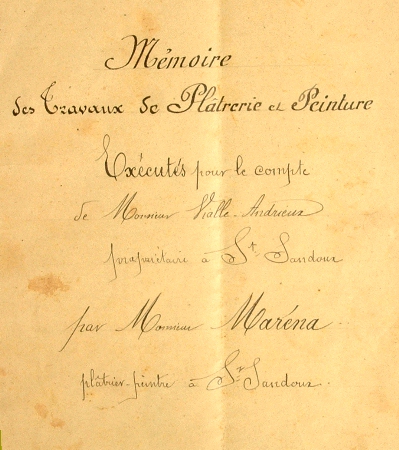 Mémoire
des Travaux de Plâtrerie et Peinture
Exécutés pour le compte
de Monsieur Vialle-Andrieux
propriétaire à St Sandoux
par Monsieur Maréna
plâtrier-peintre à St Sandoux.